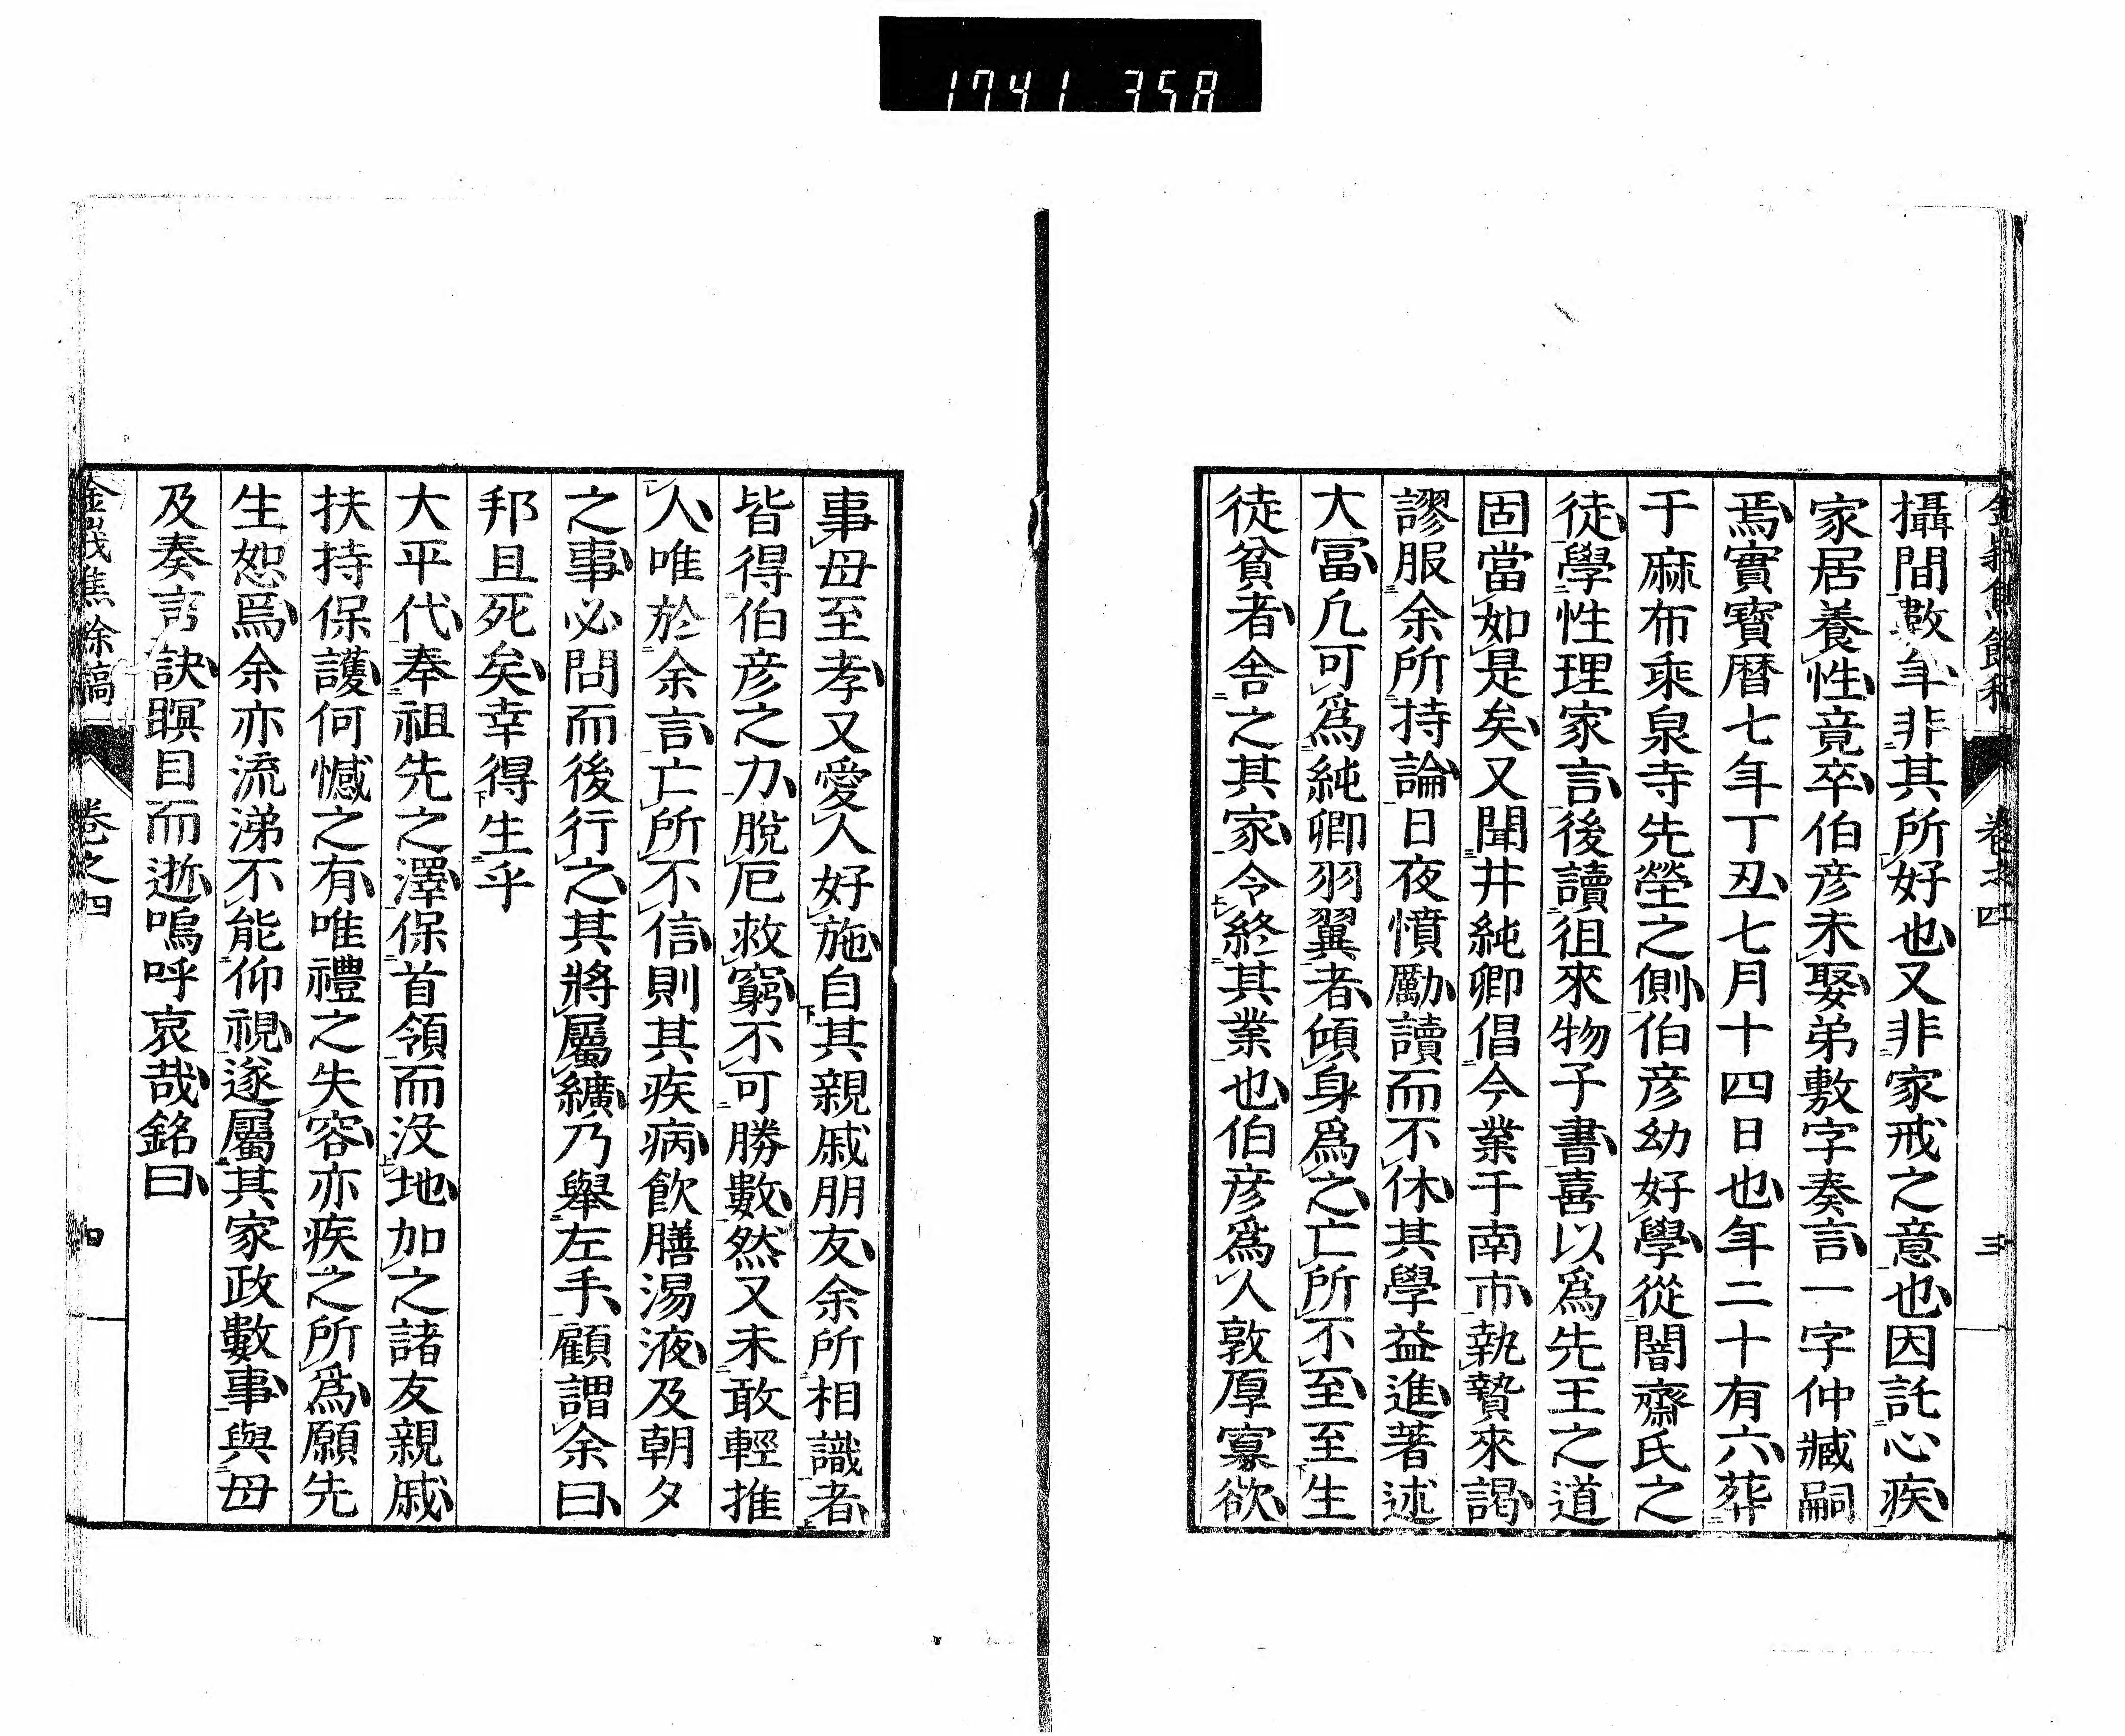 1741 358
攝間數年非其所好也又非家戒之意也因託心疾
家居養性竟卒伯彦未娶弟敷字奏言一字仲臧嗣
焉實寶暦七年丁丑七月十四日也年二十有六葬
于麻布乘泉寺先塋之側伯彦幼好學從闇齋氏之
徒學性理家言後讀徂來物子書喜以爲先王之道
固當如是矣又聞井純卿倡今業于南市執贄來謁
謬服余所持論日夜憤勵讀而不休其學益進著述
大富凡可爲純卿羽翼者傾身爲之亡所不至至生
徒貧者舍之其家令終其業也伯彦爲人敦厚寡欲
金峩焦餘稿 卷之四 三
事母至孝又愛人好施自其親戚朋友余所相識者
皆得伯彦之力脫厄救窮不可勝數然又未敢輕推
人唯於余言亡所不信則其疾病飮膳湯液及朝夕
之事必問而後行之其將屬纊乃舉左手顧謂余曰
邦且死矣幸得生乎
大平代奉祖先之澤保首領而沒地加之諸友親戚
扶持保護何憾之有唯禮之失容亦疾之所爲願先
生恕焉余亦流涕不能仰視遂屬其家政數事與母
及奏言訣瞑目而逝嗚呼哀哉銘曰
金峩焦餘稿 卷之四 四